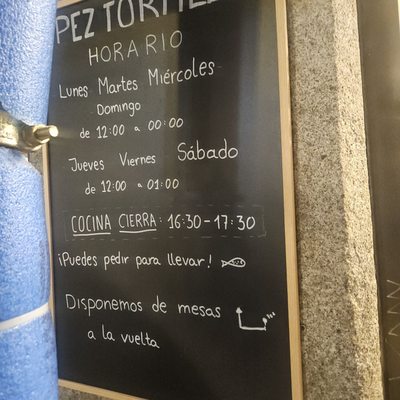 PEZ TORTILLA
HORARIO
Lunes Martes Miércoles
Domingo
de 12:00 a 00:00
Jueves Viernes Sábado
de 12:00 a 01:00
COCINA CIERRA: 16:30-17:30
¡Puedes pedir para llevar!
Disponemos de mesas
a la vuelta